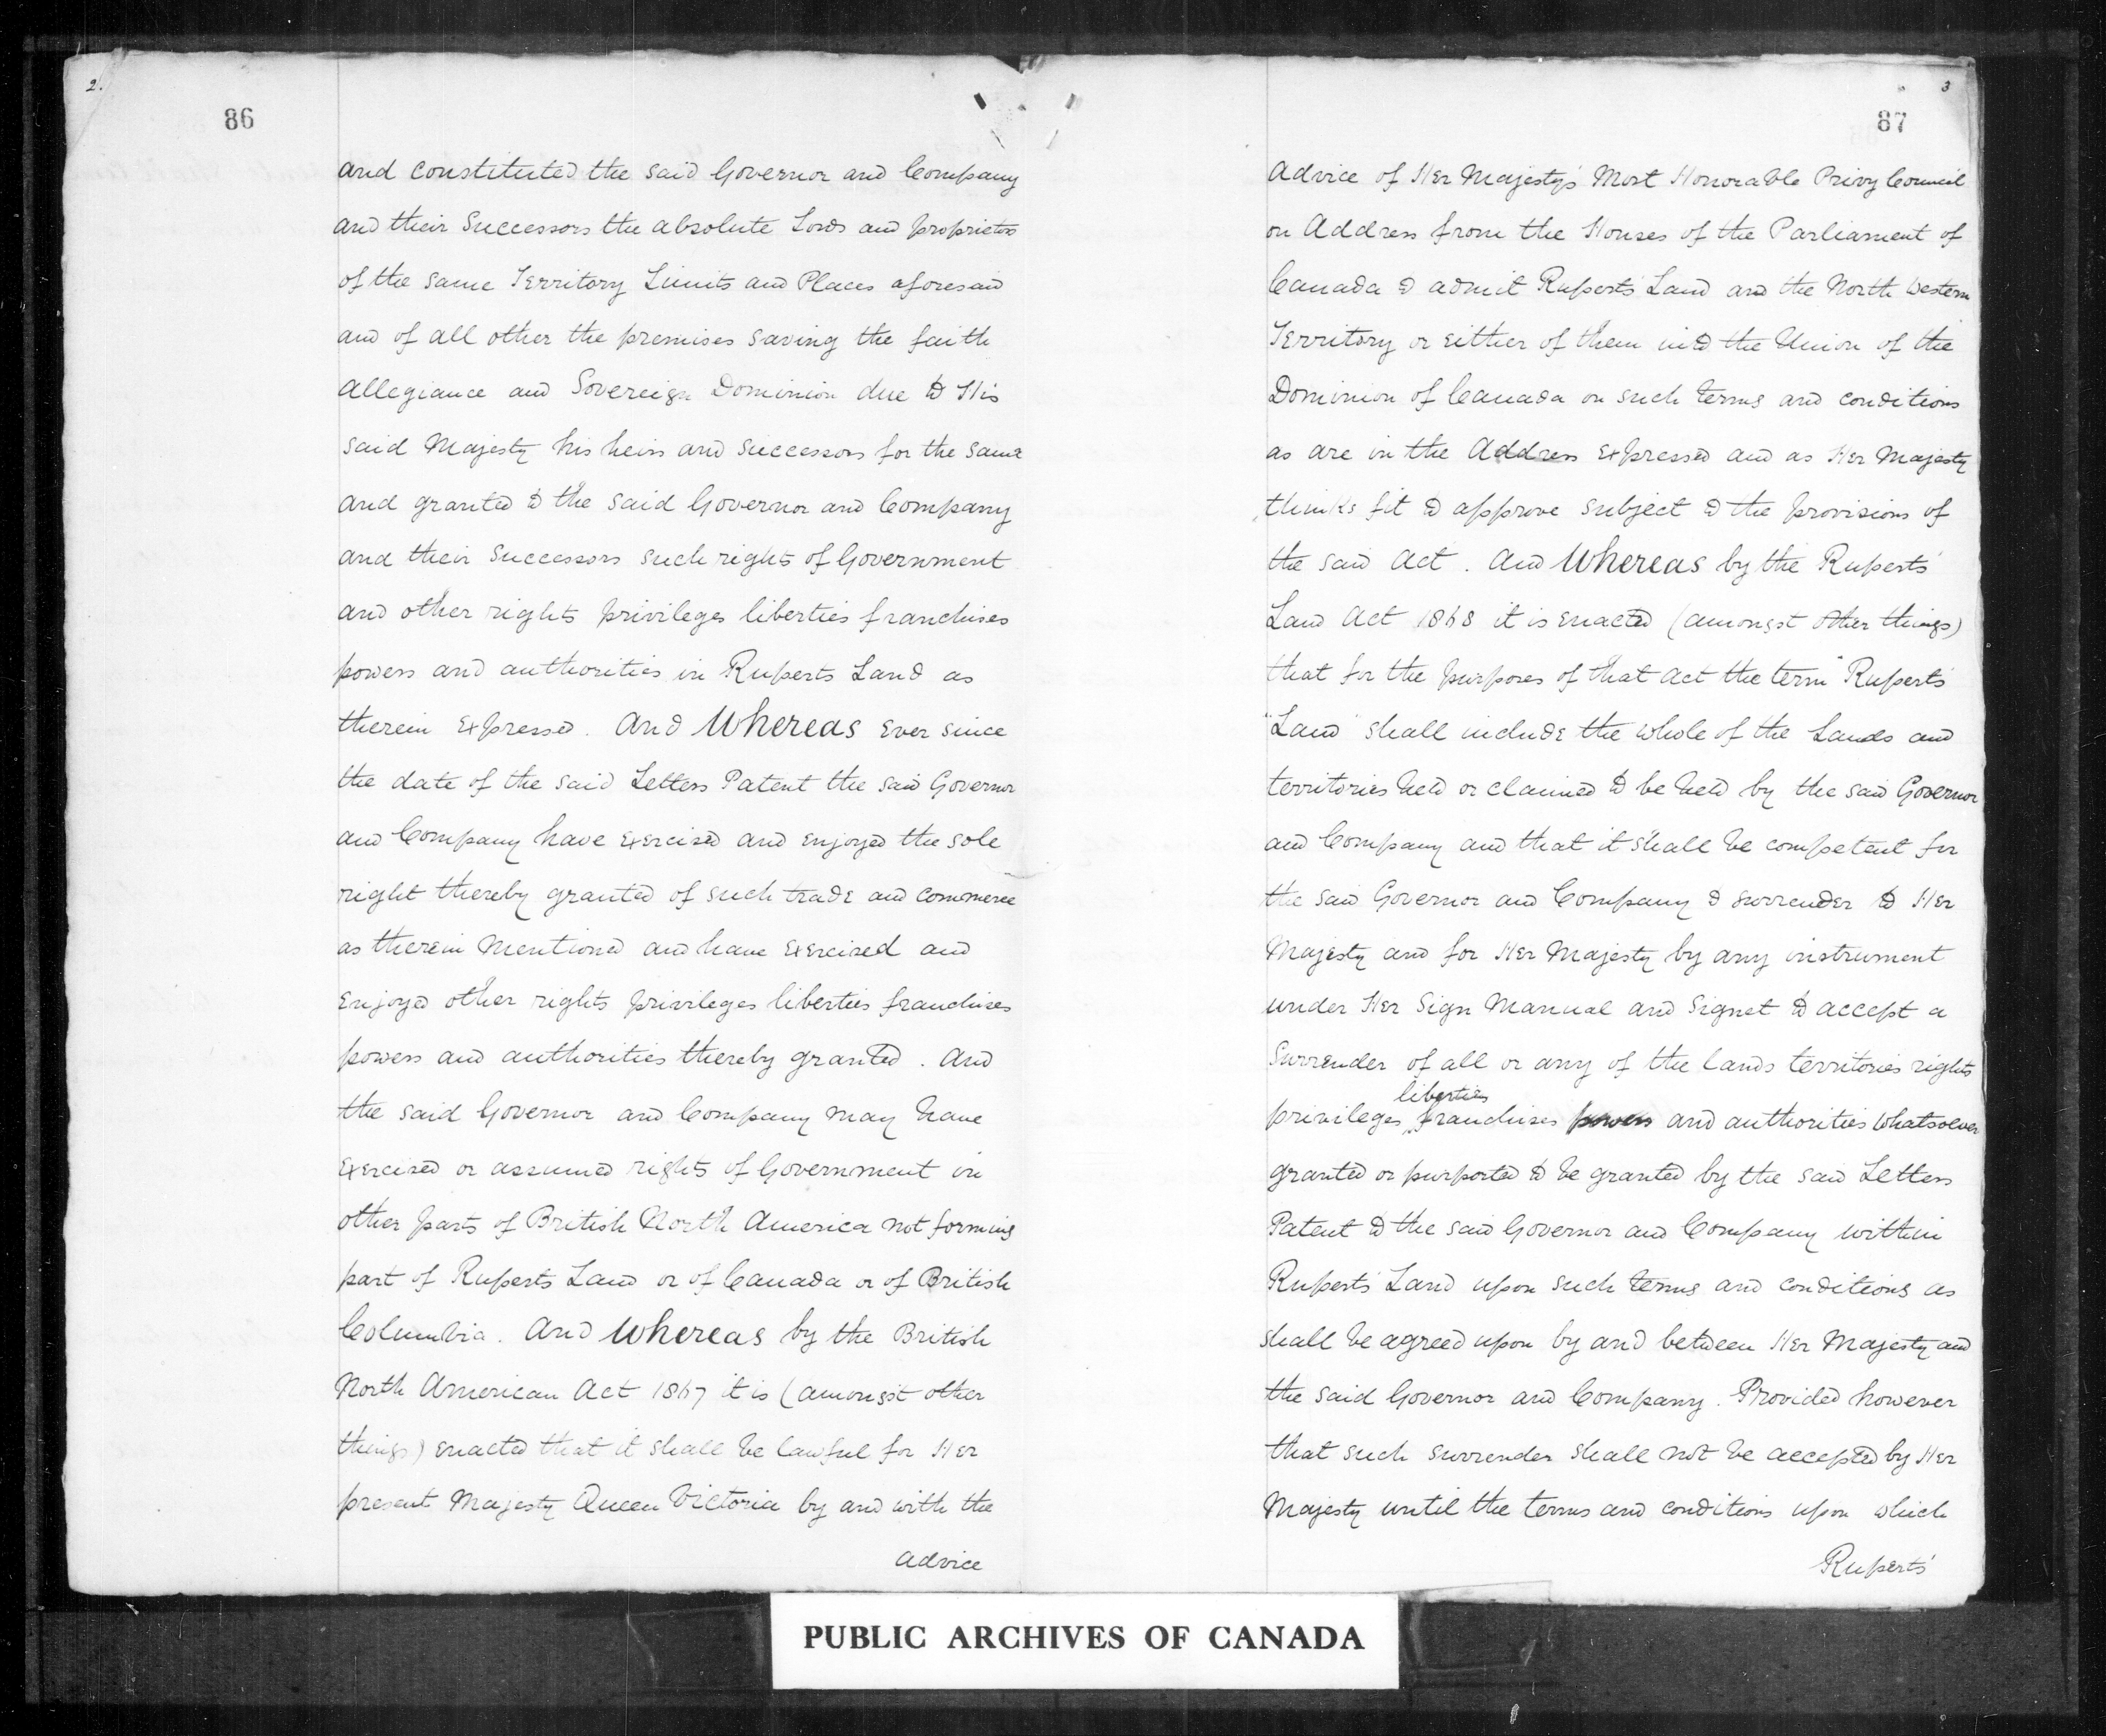 2.
86
and constituted the said Governor and Company
and their Successors the absolute Lords and proprietors
of the same Territory Limits and Places aforesaid
and of all other the premises saving the faith
allegiance and Sovereign Dominion due to His
said Majesty his heirs and successors for the same
and granted to the said Governor and Company
and their Successors such rights of Government
and other rights privileges liberties franchises
powers and authorities in Ruperts Land as
therein expressed. And Whereas ever since
the date of the said Letters Patent the said Governor
and Company have exercised and enjoyed the sole
right thereby granted of such trade and commerce
as therein mentioned and have exercised and
enjoyed other rights privileges liberties franchises
powers and authorities thereby granted. And
the said Governor and Company may have
exercised or assumed rights of Government in
other parts of British North America not forming
part of Ruperts Land or of Canada or of British
Columbia. And Whereas by the British
North American Act 1867 it is (amongst other
things) enacted that it shall be lawful for Her
present Majesty Queen Victoria by and with the
advice
3
87
Advice of Her Majesty's Most Honorable Privy Council
on Address from the Houses of the Parliament of
Canada to admit Ruperts Land and the North Western
Territory or either of them into the Union of the
Dominion of Canada on such terms and conditions
as are in the Address expressed and as Her Majesty
thinks fit to approve subject to the provisions of
the said Act. And Whereas by the Ruperts'
Land Act 1868 it is enacted (amongst other things)
that for the purposes of that Act the term "Ruperts'
"Land" shall include the whole of the Lands and
territories held or claimed to be held by the said Governor
and Company and that it shall be competent for
the said Governor and Company to surrender to Her
Majesty and for Her Majesty by any instrument
under Her Sign Manual and Signet to accept a
Surrender of all or any of the lands territories rights
liberties
privileges, franchises powers and authorities whatsoever
granted or purported to be granted by the said Letters
Patent to the said Governor and Company within
Ruperts' Land upon such terms and conditions as
shall be agreed upon by and between Her Majesty and
the said Governor and Company. Provided however
that such surrender shall not be accepted by Her
Majesty until the terms and conditions upon which
Ruperts'
PUBLIC ARCHIVES OF CANADA